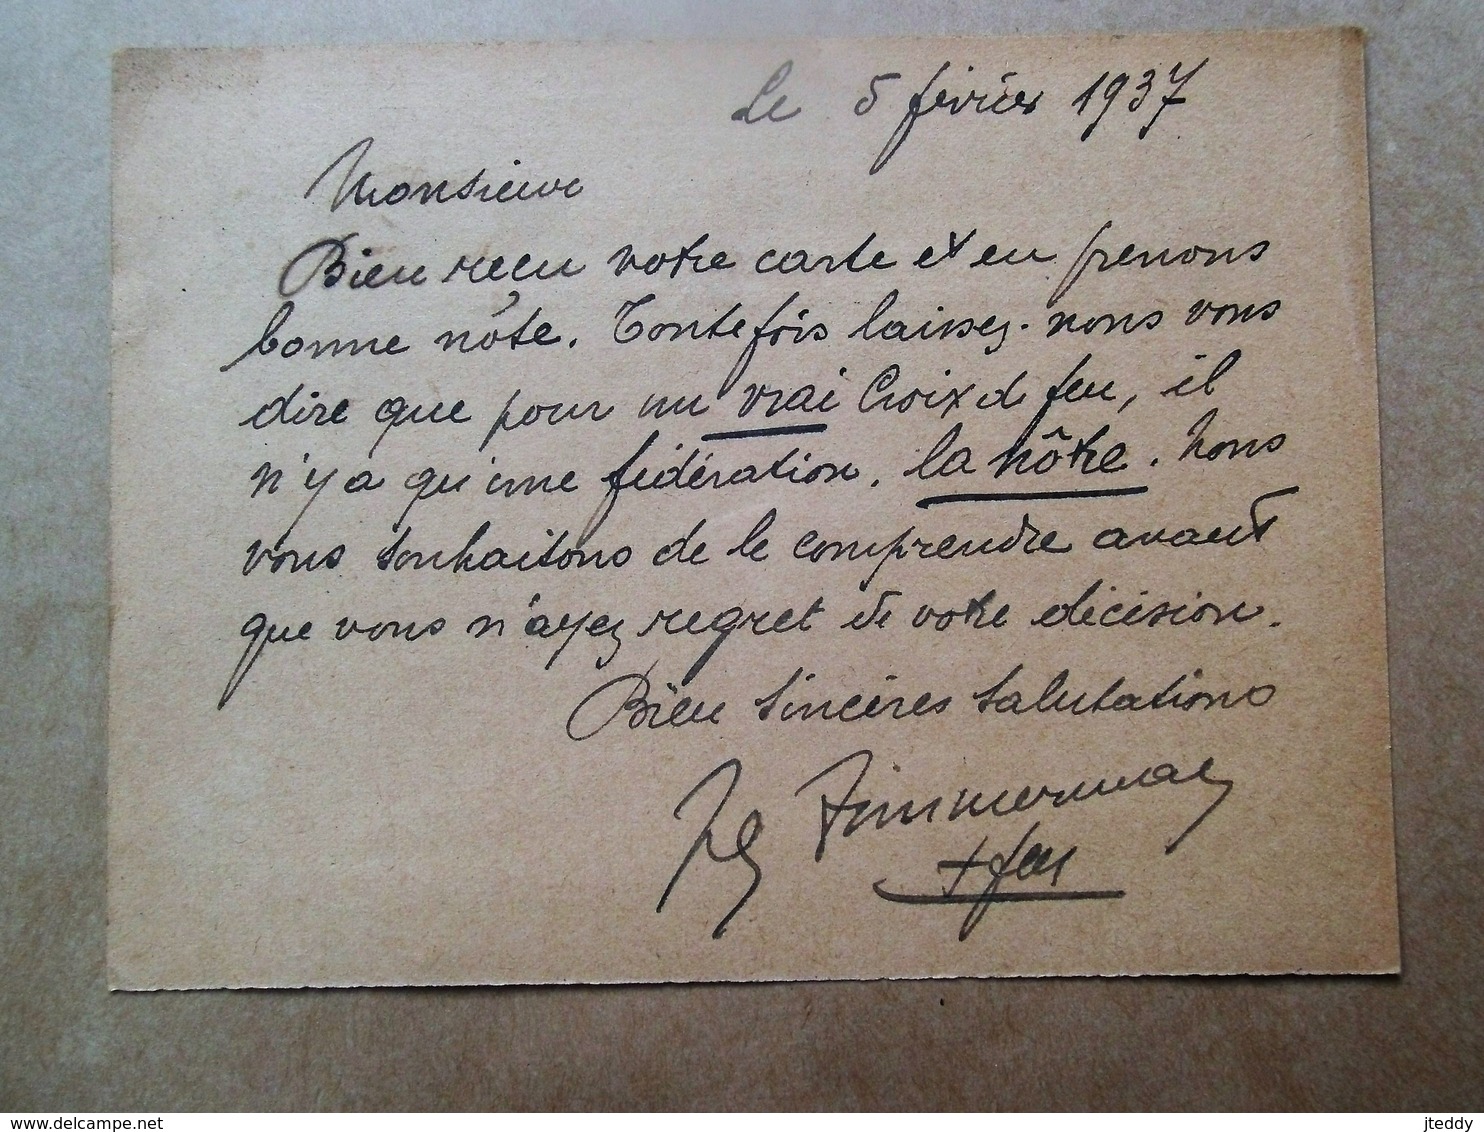 Le 5 février 1937
Monsieur
Bien reçu votre carte et en prenons
bonne note. Toutefois laissez-nous vous
dire que pour un vrai Croix d feu, il
n'y a qu'une fédération, la nôtre. Nous
vous souhaitons de le comprendre avant
que vous n'ayez regret de votre décision.
Bien sincères salutations
Zimmerman
+ feu
www.delcampe.net
jteddy